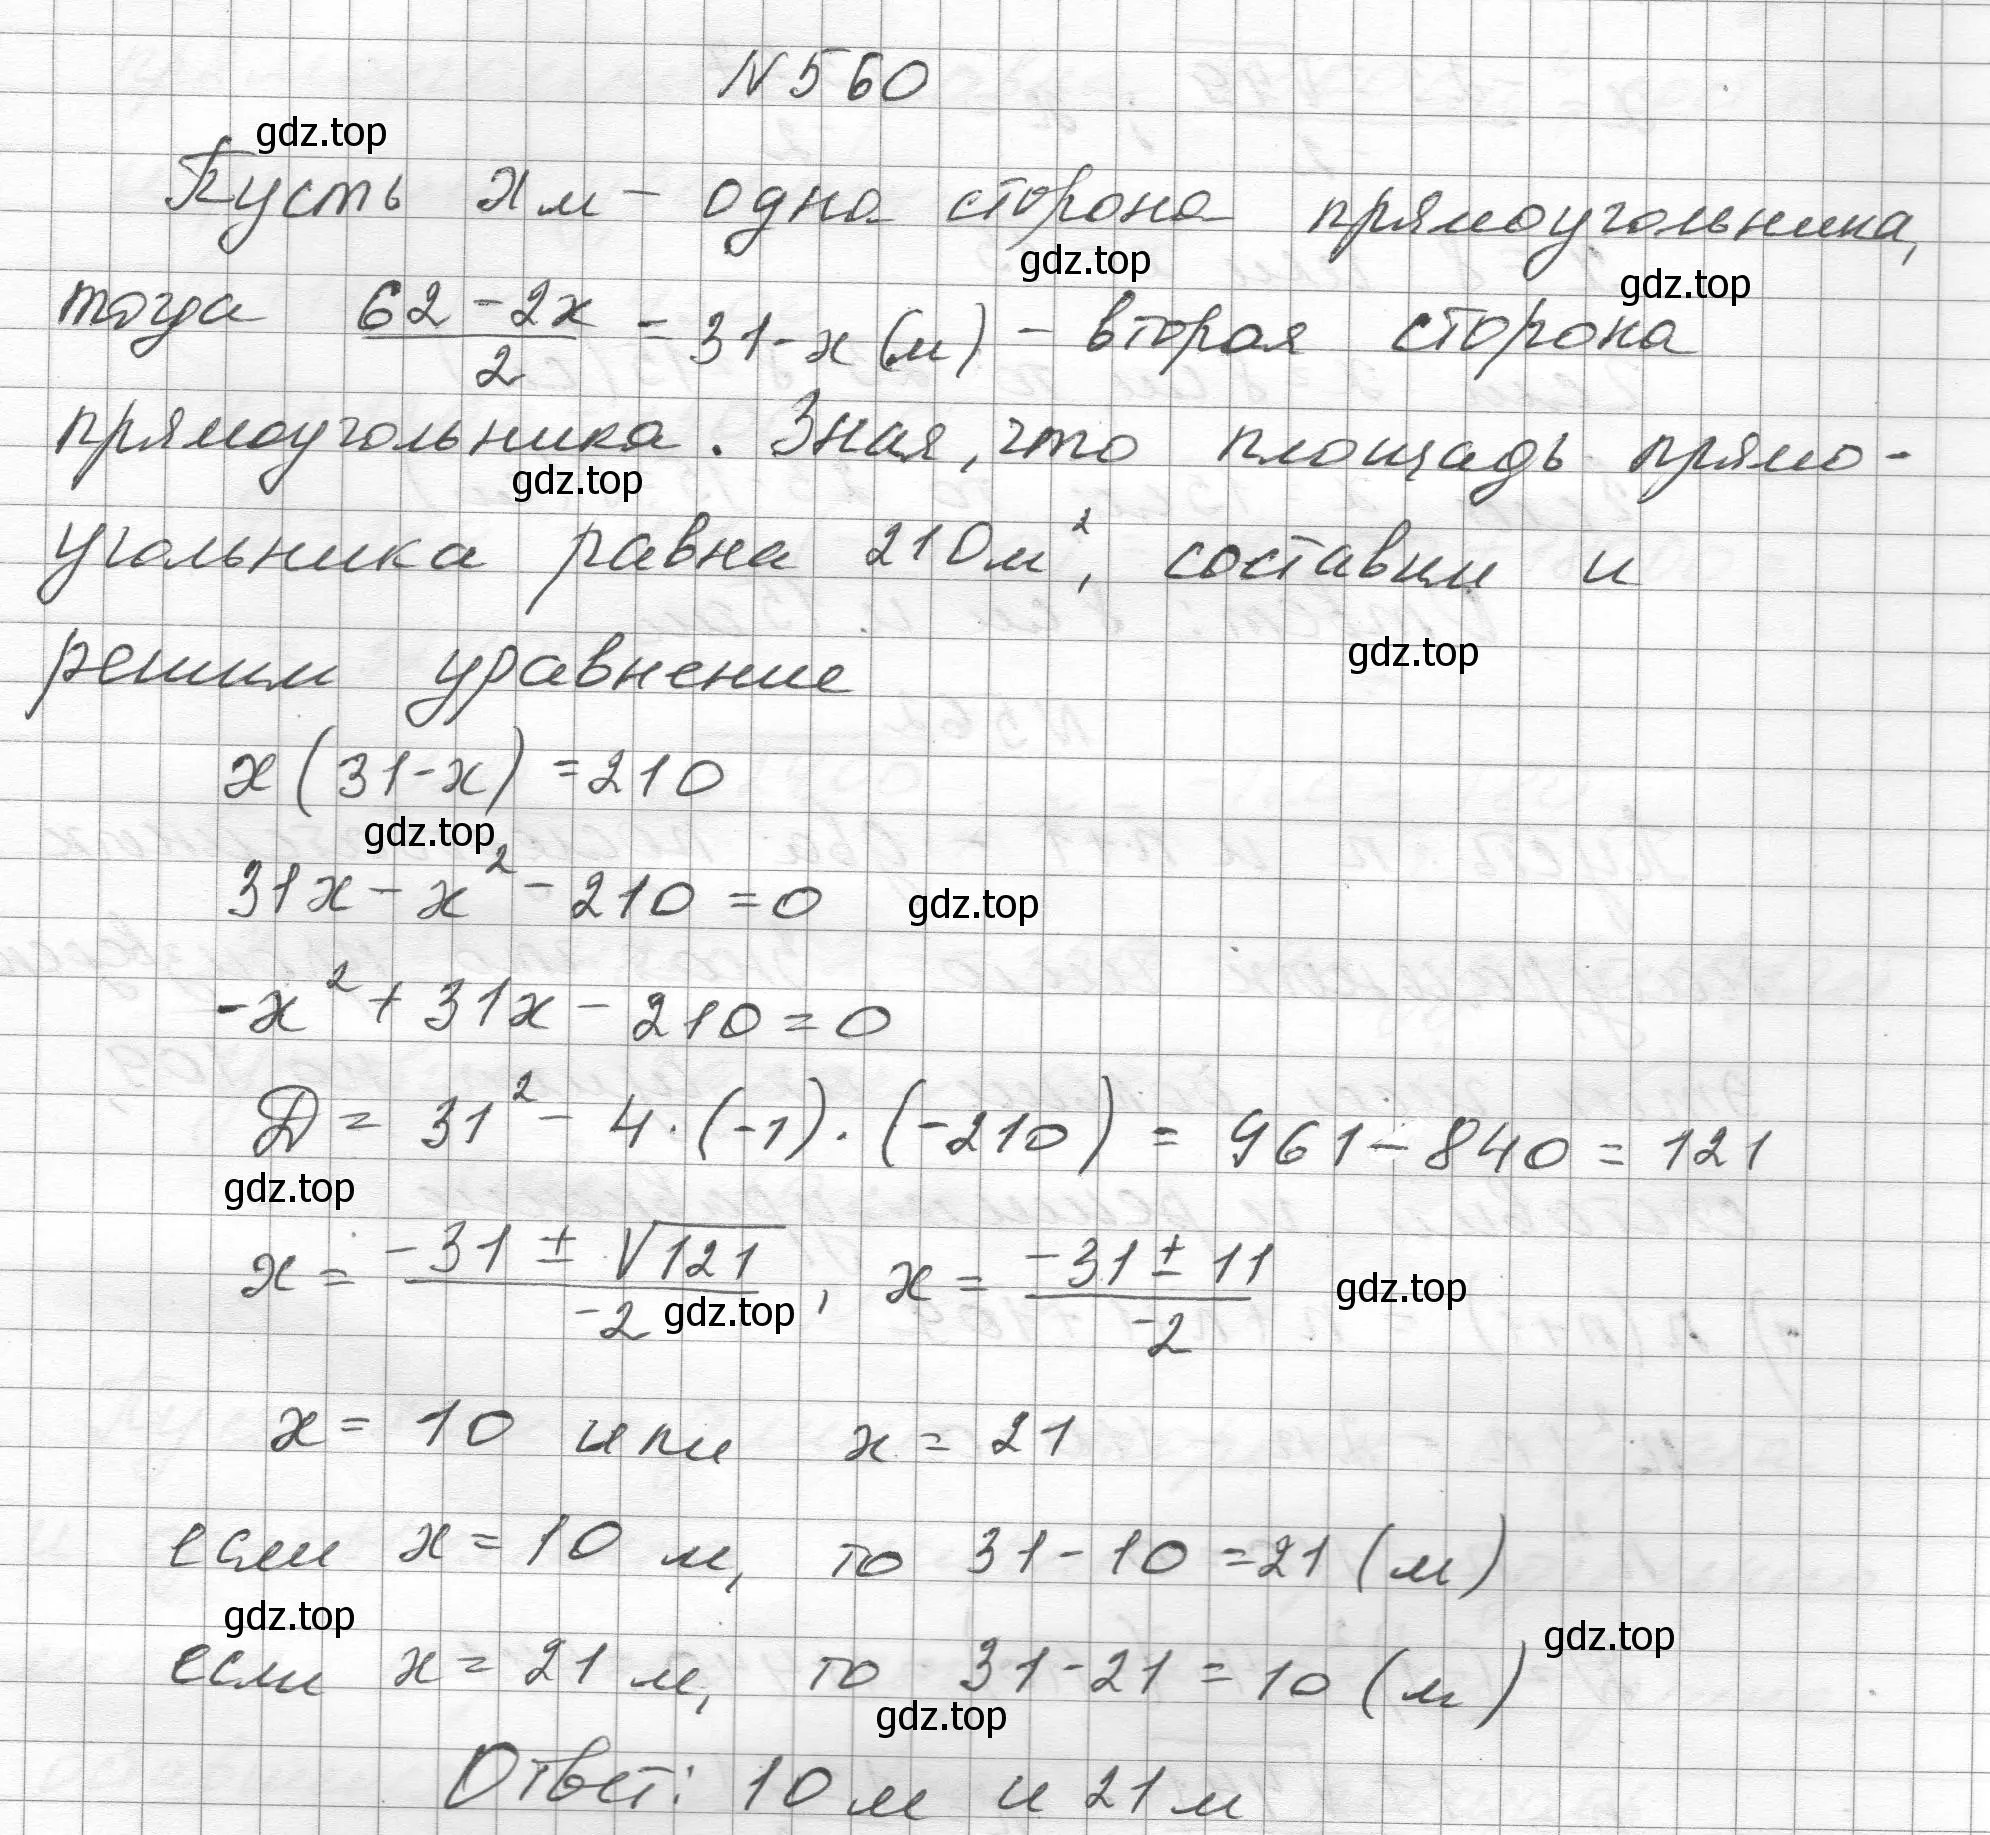 N 560
gdz.top
Пусть x м - одна сторона прямоугольника,
gdz.top
gdz.top
тогда (62 - 2x)/2 = 31 - x (м) - вторая сторона
прямоугольника. Зная, что площадь прямо-
gdz.top
угольника равна 210 м², составим и
решим уравнение
gdz.top
x (31 - x) = 210
gdz.top
31x - x² - 210 = 0
gdz.top
-x² + 31x - 210 = 0
D = 31² - 4 · (-1) · (-210) = 961 - 840 = 121
gdz.top
x = (-31 ± √121)/-2, x = (-31 ± 11)/-2
gdz.top
gdz.top
x = 10 или x = 21
если x = 10 м, то 31 - 10 = 21 (м)
gdz.top
gdz.top
если x = 21 м, то 31 - 21 = 10 (м)
gdz.top
Ответ: 10 м и 21 м